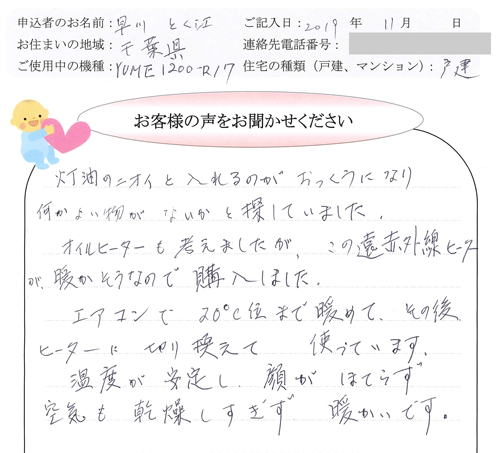 申込者のお名前：早川 とく江 ご記入日：2019 年 11月 日
お住まいの地域：千葉県 連絡先電話番号：
ご使用中の機種：YUME1200-R17 住宅の種類（戸建、マンション）：戸建
お客様の声をお聞かせください
灯油のニオイと入れるのがおっくうになり
何かよい物がないかと探していました。
オイルヒーターも考えましたが、この遠赤外線ヒーター
が、暖かそうなので購入しました。
エアコンで20℃位まで暖めて、その後
ヒーターに切り換えて使っています。
温度が安定し、顔がほてらず
空気も乾燥しすぎず暖かいです。